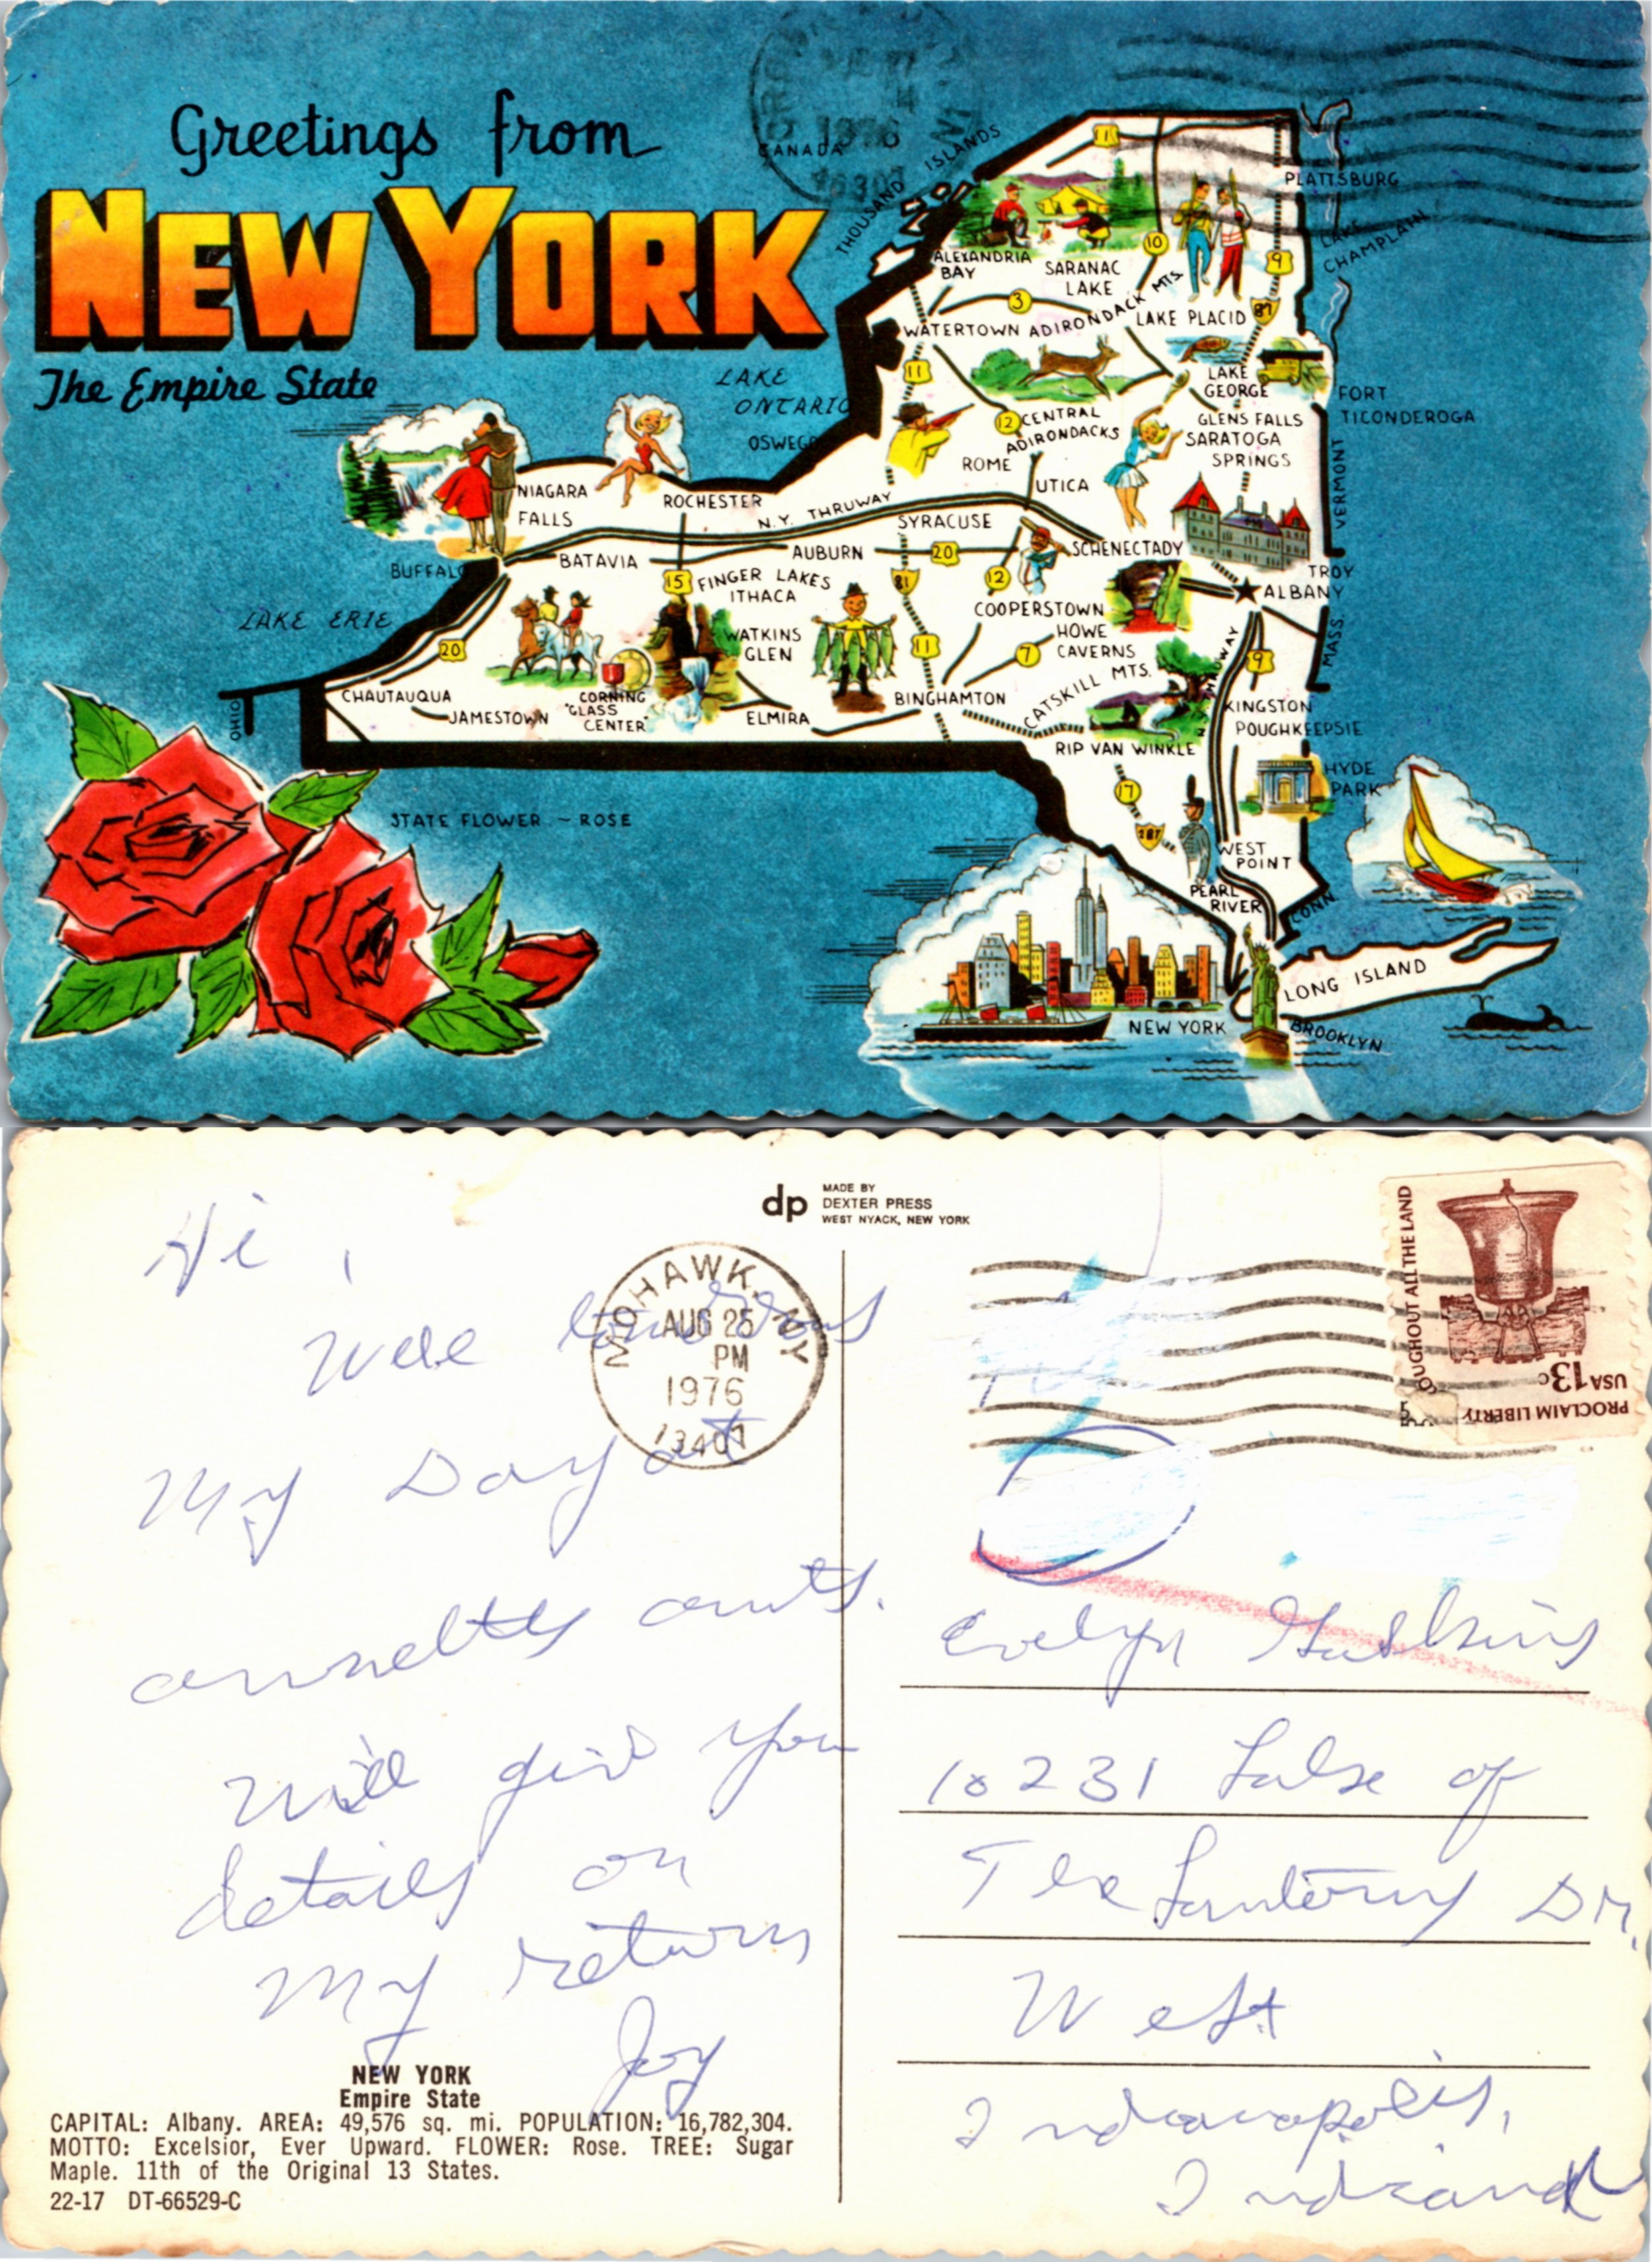 Greetings from
NEW YORK
The Empire State
CANADA
1976
THOUSAND ISLANDS
1
PLATTSBURG
LAKE CHAMPLAIN
ALEXANDRIA BAY
SARANAC LAKE
10
9
87
3
ADIRONDACK MTS.
LAKE PLACID
WATERTOWN
11
LAKE GEORGE
FORT TICONDEROGA
LAKE ONTARIO
OSWEGO
12
CENTRAL ADIRONDACKS
GLENS FALLS
SARATOGA SPRINGS
ROME
UTICA
VERMONT
NIAGARA FALLS
ROCHESTER
N.Y. THRUWAY
SYRACUSE
BUFFALO
BATAVIA
AUBURN
20
SCHENECTADY
TROY
ALBANY
15
FINGER LAKES
ITHACA
81
12
COOPERSTOWN
HOWE CAVERNS
MASS.
LAKE ERIE
20
WATKINS GLEN
11
7
CATSKILL MTS.
N.Y. THRUWAY
9
OHIO
CHAUTAUQUA
JAMESTOWN
CORNING "GLASS CENTER"
ELMIRA
BINGHAMTON
KINGSTON
POUGHKEEPSIE
RIP VAN WINKLE
HYDE PARK
17
STATE FLOWER ~ ROSE
WEST POINT
PEARL RIVER
CONN.
LONG ISLAND
NEW YORK
BROOKLYN
dp
MADE BY
DEXTER PRESS
WEST NYACK, NEW YORK
MOHAWK, NY
AUG 25
PM
1976
13407
OUGHOUT ALL THE LAND
USA 13c
PROCLAIM LIBERTY
Hi,
My Day at
aunts.
Will give you
details on
My return
Joy
Evelyn
10231
The Dr.
West
Indianapolis,
Indiana
NEW YORK
Empire State
CAPITAL: Albany. AREA: 49,576 sq. mi. POPULATION: 16,782,304.
MOTTO: Excelsior, Ever Upward. FLOWER: Rose. TREE: Sugar
Maple. 11th of the Original 13 States.
22-17 DT-66529-C